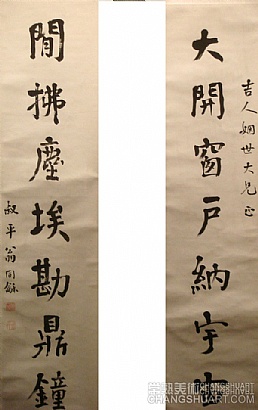 吉人姻世大兄正
大開窗戶納宇宙
閒拂塵埃勘鼎鐘
叔平翁同龢
CHANGSHUART.COM